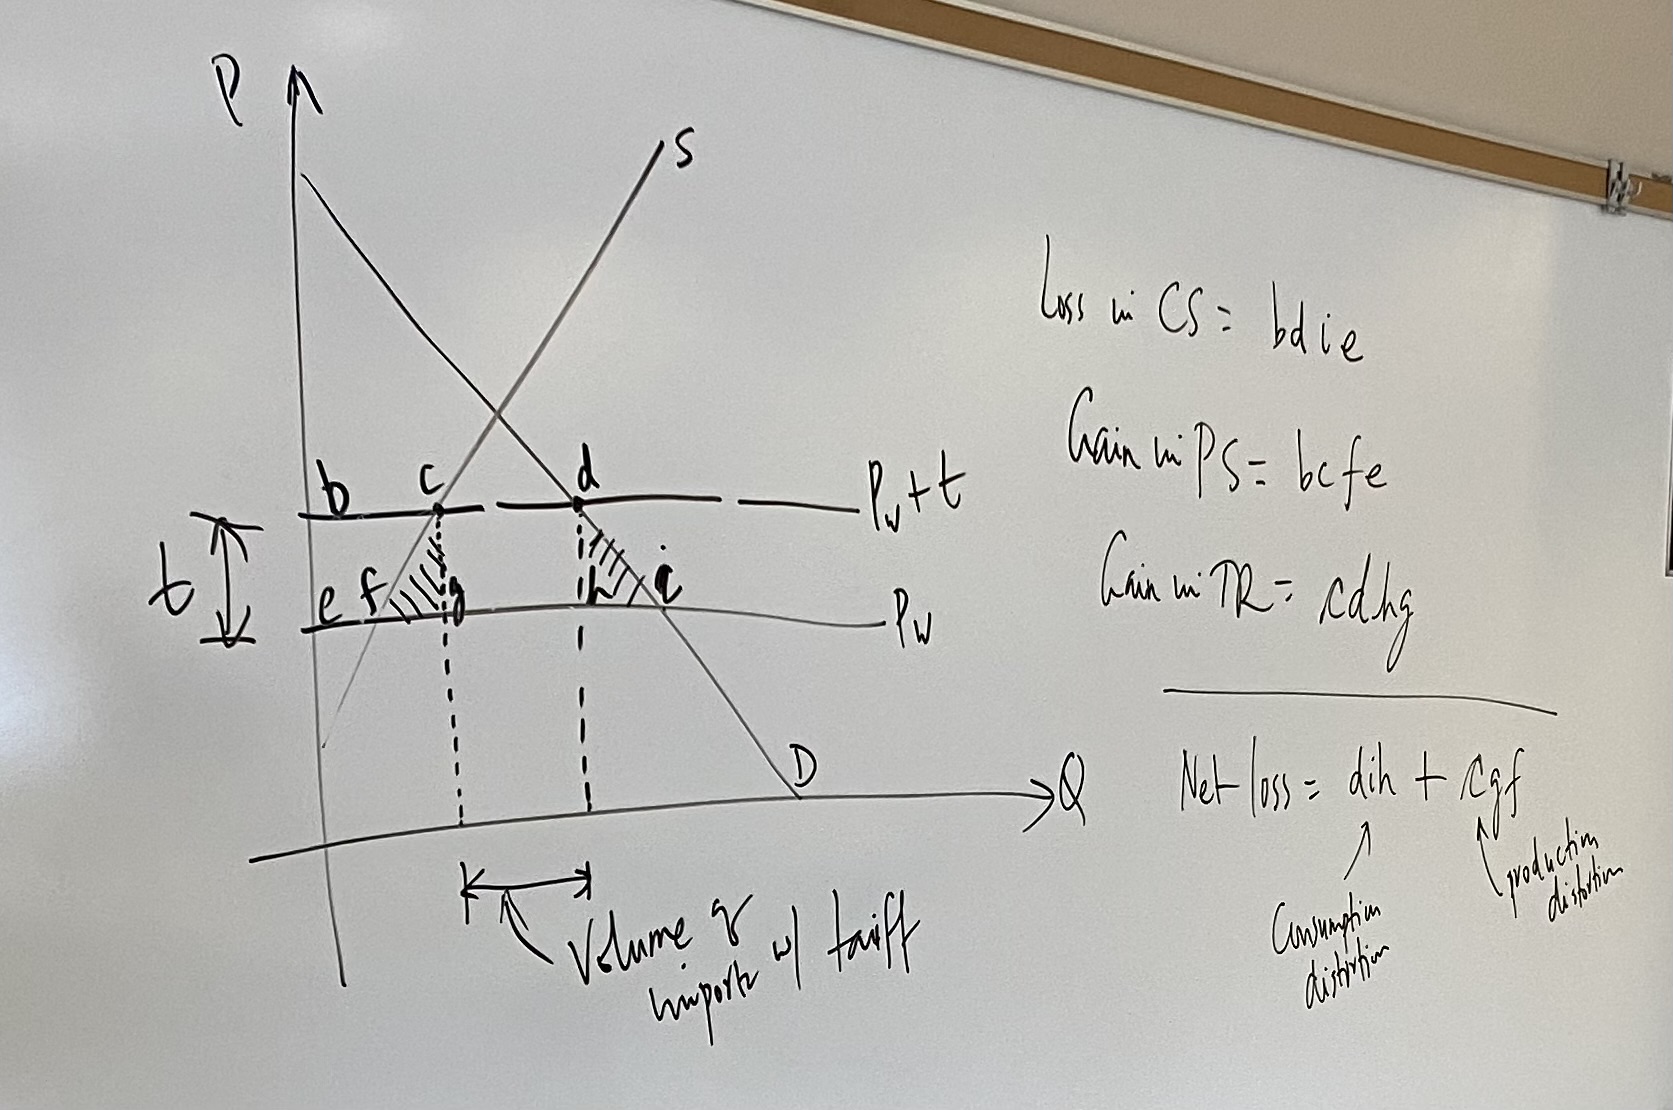 P
S
b c d
P_w + t
t
e f g h i
P_w
D
Q
Volume of
imports w/ tariff
Loss in CS = bdie
Gain in PS = bcfe
Gain in TR = cdhg
Net loss = dih + cgf
Consumption
distortion
production
distortion